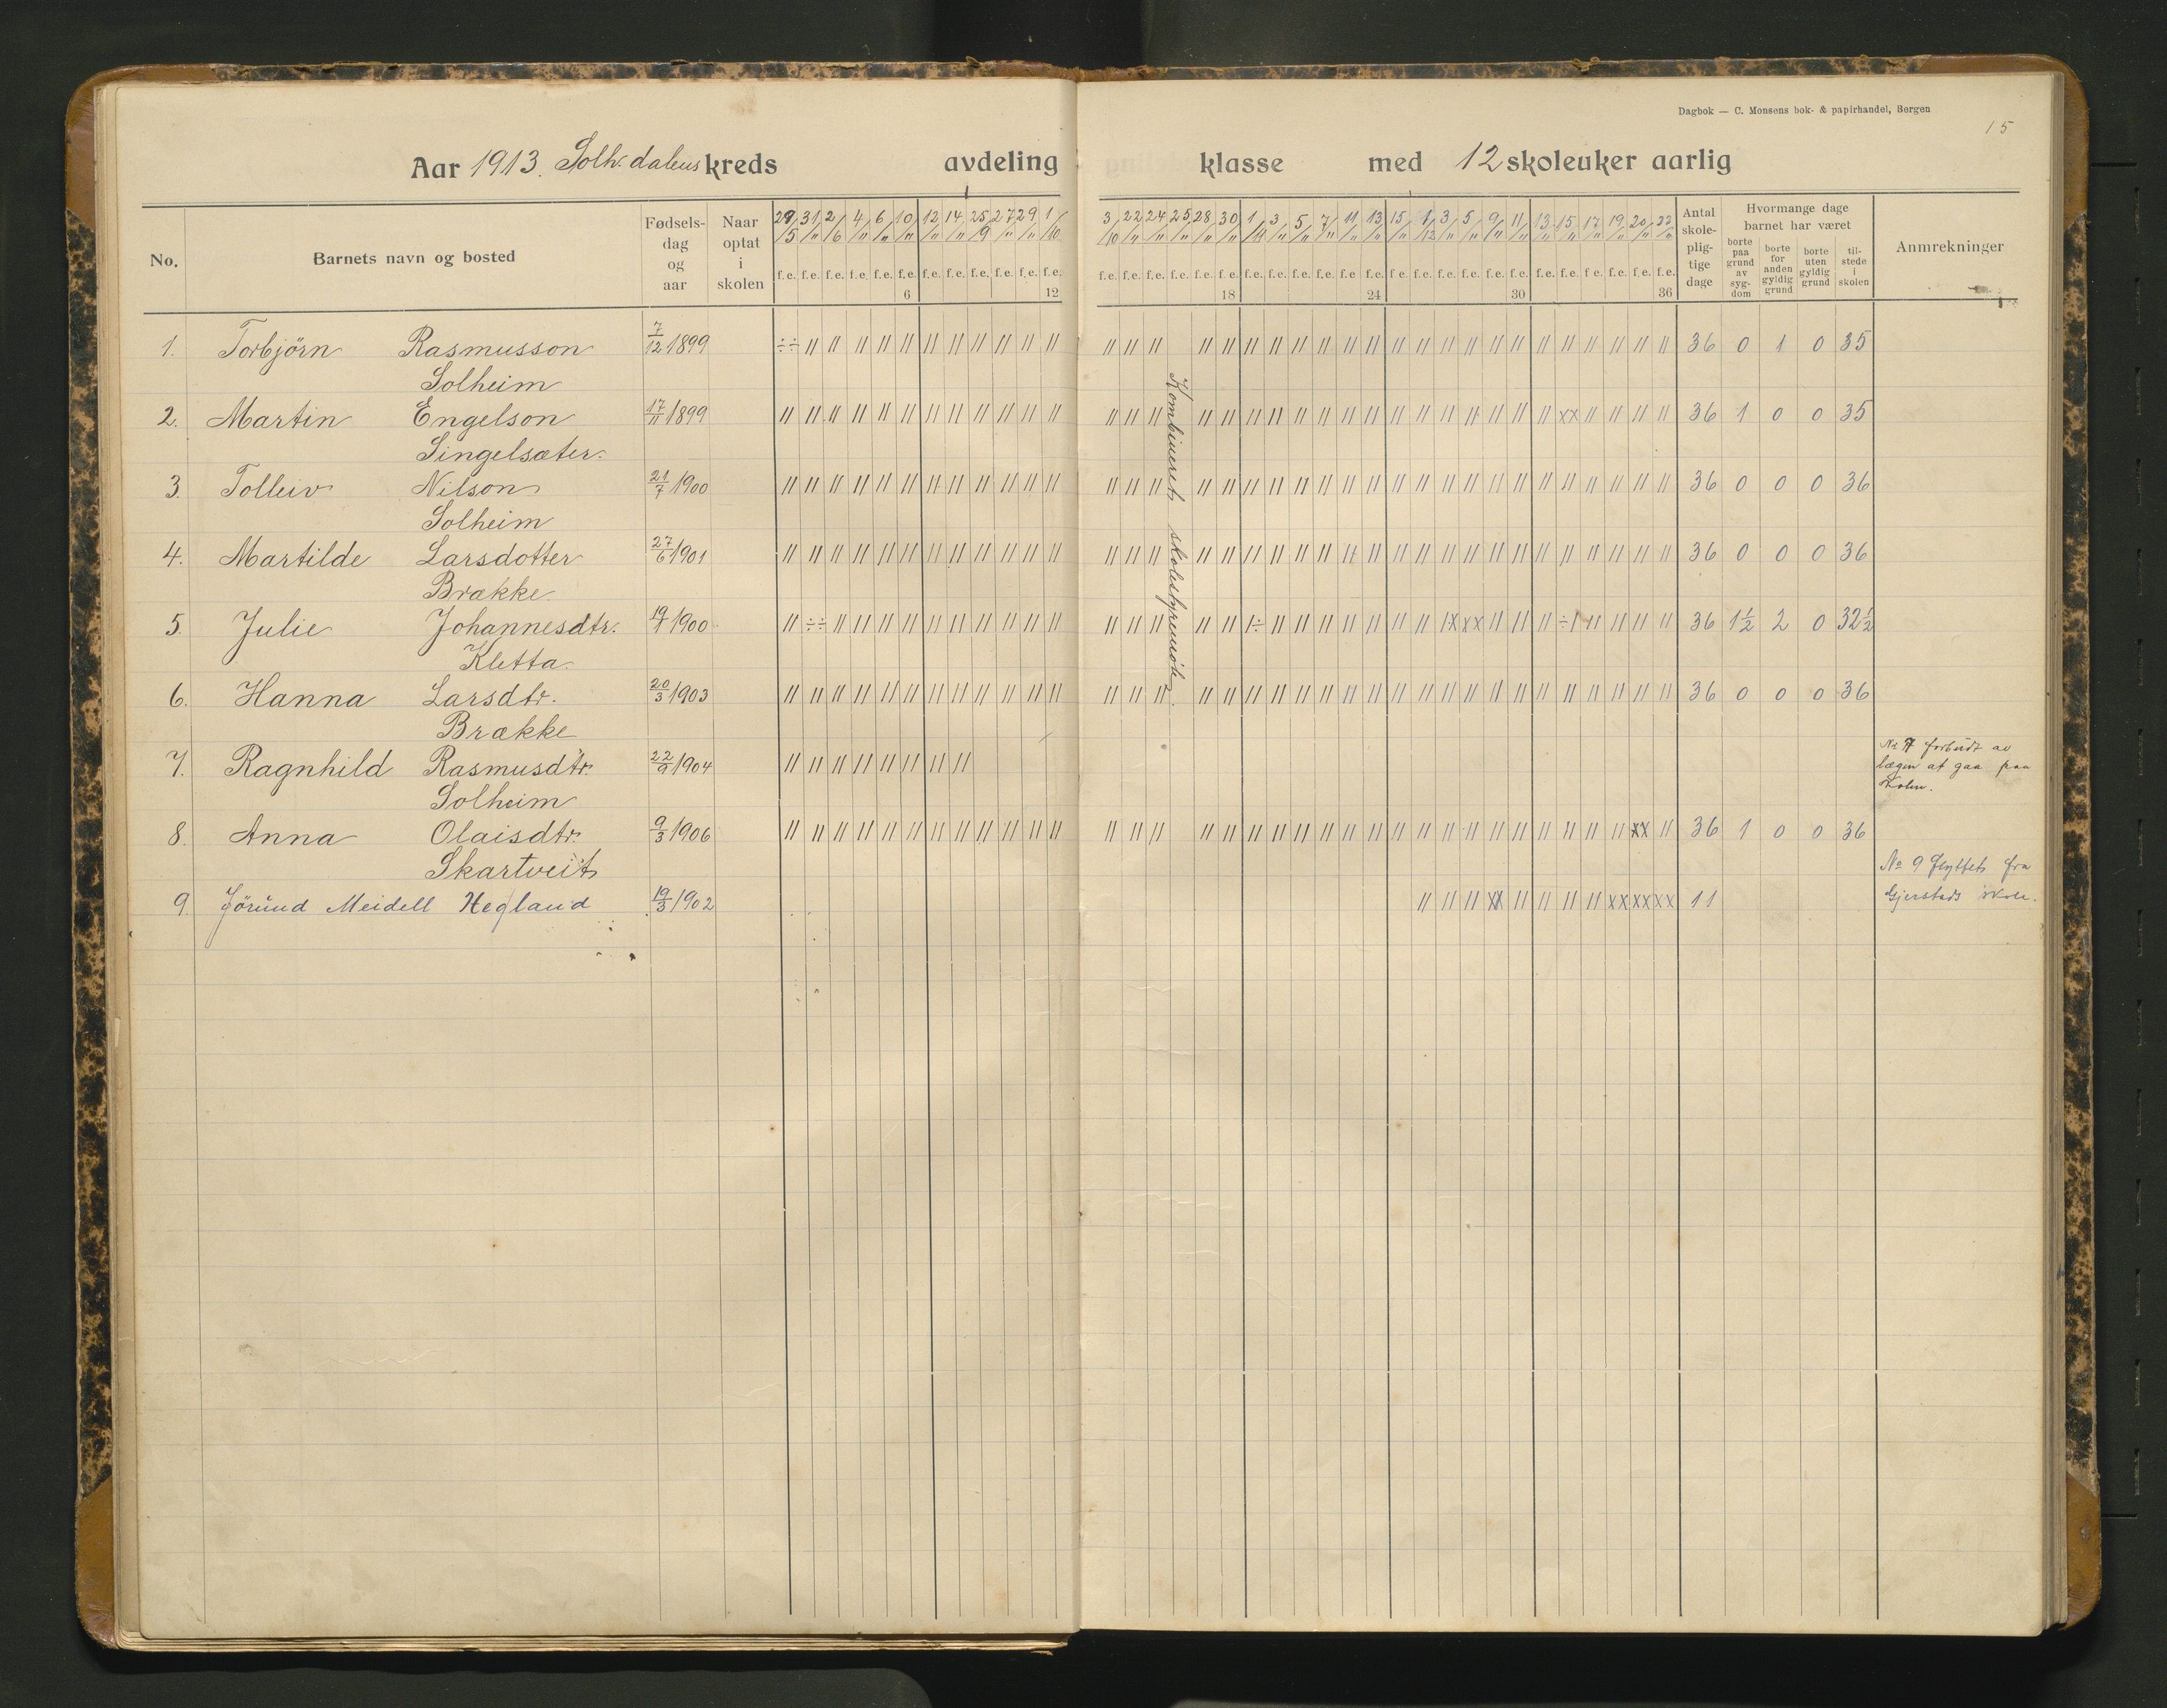 Dagbok — C. Monsens bok- & papirhandel, Bergen
15
Aar 1913. Solh.dalens kreds avdeling klasse med 12 skoleuker aarlig
No. Barnets navn og bosted Fødsels-dag og aar Naar optat i skolen 29/5 31/" 2/6 4/" 6/" 10/" 12/" 14/" 25/9 27/" 29/" 1/10 3/10 22/" 24/" 25/" 28/" 30/" 1/11 3/" 5/" 7/" 11/" 13/" 15/" 1/12 3/" 5/" 9/" 11/" 13/" 15/" 17/" 19/" 20/" 22/" Antal skole-plig-tige dage Hvormange dage barnet har været Anmrekninger
borte paa grund av syg-dom borte for anden gyldig grund borte uten gyldig grund til-stede i skolen
f.e. f.e. f.e. f.e. f.e. f.e. f.e. f.e. f.e. f.e. f.e. f.e. f.e. f.e. f.e. f.e. f.e. f.e. f.e. f.e. f.e. f.e. f.e. f.e. f.e. f.e. f.e. f.e. f.e. f.e. f.e. f.e. f.e. f.e. f.e. f.e.
6 12 18 24 30 36
1. Torbjörn Rasmusson 7/12 1899 36 0 1 0 35
Solheim
2. Martin Engelson 17/11 1899 36 1 0 0 35
Singelsæter.
3. Tolleiv Nilson 21/7 1900 36 0 0 0 36
Solheim
4. Martilde Larsdotter 27/6 1901 36 0 0 0 36
Brække
5. Julie Johannesdtr. 19/7 1900 36 1½ 2 0 32½
Kletta.
6. Hanna Larsdtr. 20/3 1903 36 0 0 0 36
Brække
Kombineret skolestyremöte.
7. Ragnhild Rasmusdtr. 22/9 1904
Solheim
No 7 forbudt av
lægen at gaa paa
skolen.
8. Anna Olaisdtr. 9/3 1906 36 1 0 0 36
Skartveit
9. Jörund Meidell Hegland 19/3 1902 11
No 9 flyttet fra
Gjerstads skole.